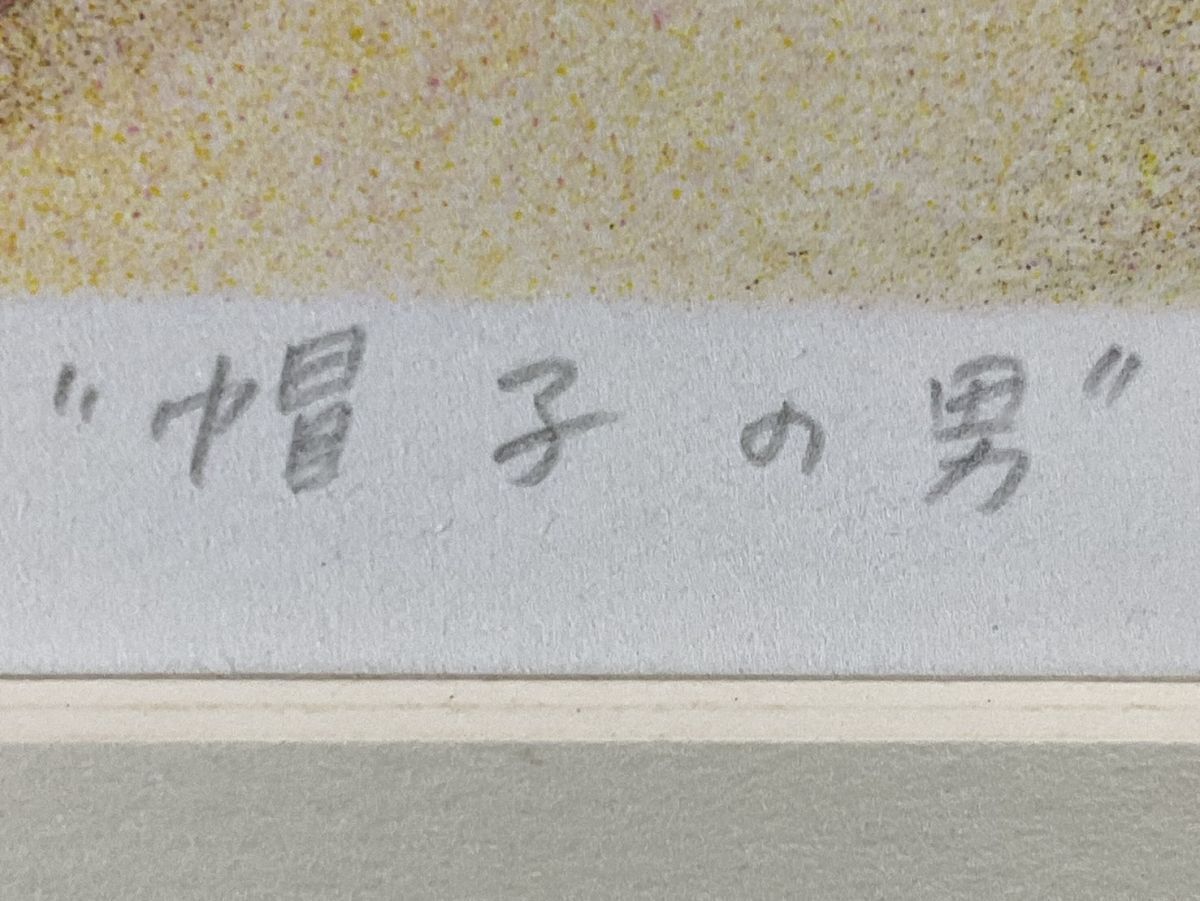 "帽子の男"